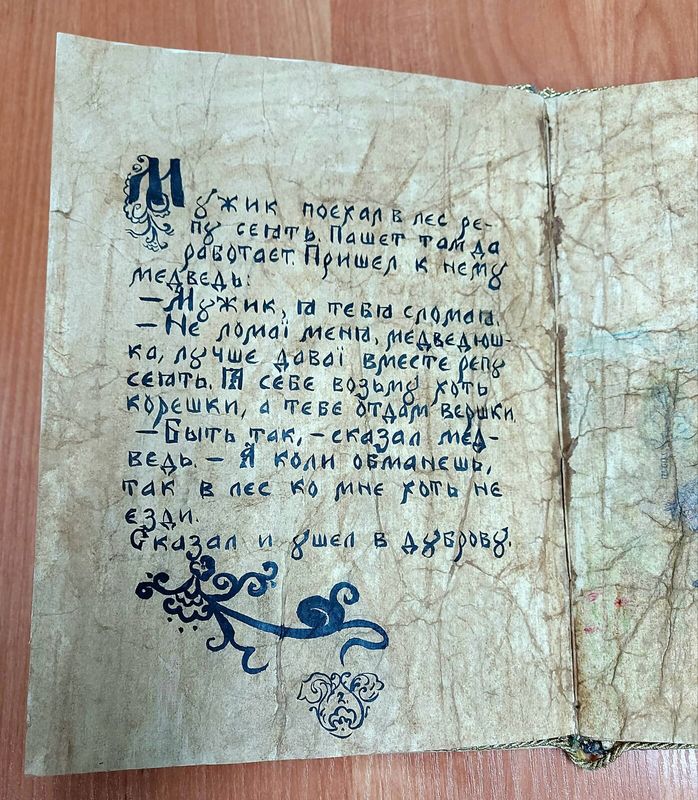 Мужик поехал в лес ре-
пу сеꙗть. Пашет там да
работает. Пришел к нему
медведь:
– Мужик, ꙗ тебꙗ сломаю.
– Не ломаї менꙗ, медведюш-
ка, лучше даваї вместе репу
сеꙗть. Ꙗ себе возьму хоть
корешки, а тебе отдам вершки.
– Быть так, – сказал мед-
ведь. – А коли обманешь,
так в лес ко мне хоть не
езди.
Сказал и ушел в дуброву.
2